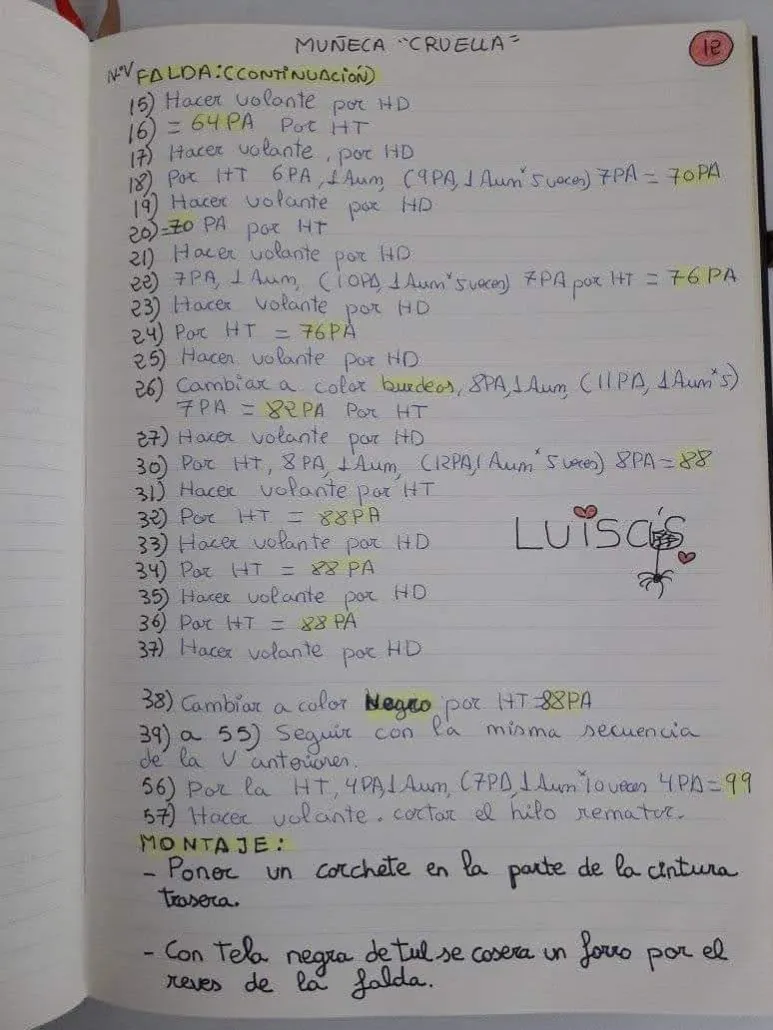 MUÑECA "CRUELLA"
12
NºV FALDA:(CONTINUACIÓN)
15) Hacer volante por HD
16) = 64 PA Por HT
17) Hacer volante, por HD
18) Por HT 6PA, 1 Aum, (9PA, 1 Aum*5 veces) 7PA = 70PA
19) Hacer volante por HD
20) =70 PA por HT
21) Hacer volante por HD
22) 7PA, 1 Aum, (10PA, 1 Aum*5 veces) 7PA por HT = 76 PA
23) Hacer volante por HD
24) Por HT = 76PA
25) Hacer volante por HD
26) Cambiar a color burdeos, 8PA, 1 Aum, (11PA, 1 Aum*5)
7PA = 82PA Por HT
27) Hacer volante por HD
30) Por HT, 8PA, 1 Aum, (12PA, 1 Aum*5 veces) 8PA = 88
31) Hacer volante por HT
32) Por HT = 88PA
33) Hacer volante por HD
LUISCIS
34) Por HT = 88 PA
35) Hacer volante por HD
36) Por HT = 88 PA
37) Hacer volante por HD
38) Cambiar a color Negro por HT=88PA
39) a 55) Seguir con la misma secuencia
de la V anteriores.
56) Por la HT, 4PA, 1 Aum, (7PA, 1 Aum*10 veces 4PA = 99
57) Hacer volante. cortar el hilo rematar.
MONTAJE:
- Poner un corchete en la parte de la cintura
trasera.
- Con Tela negra de tul se cosera un forro por el
reves de la falda.